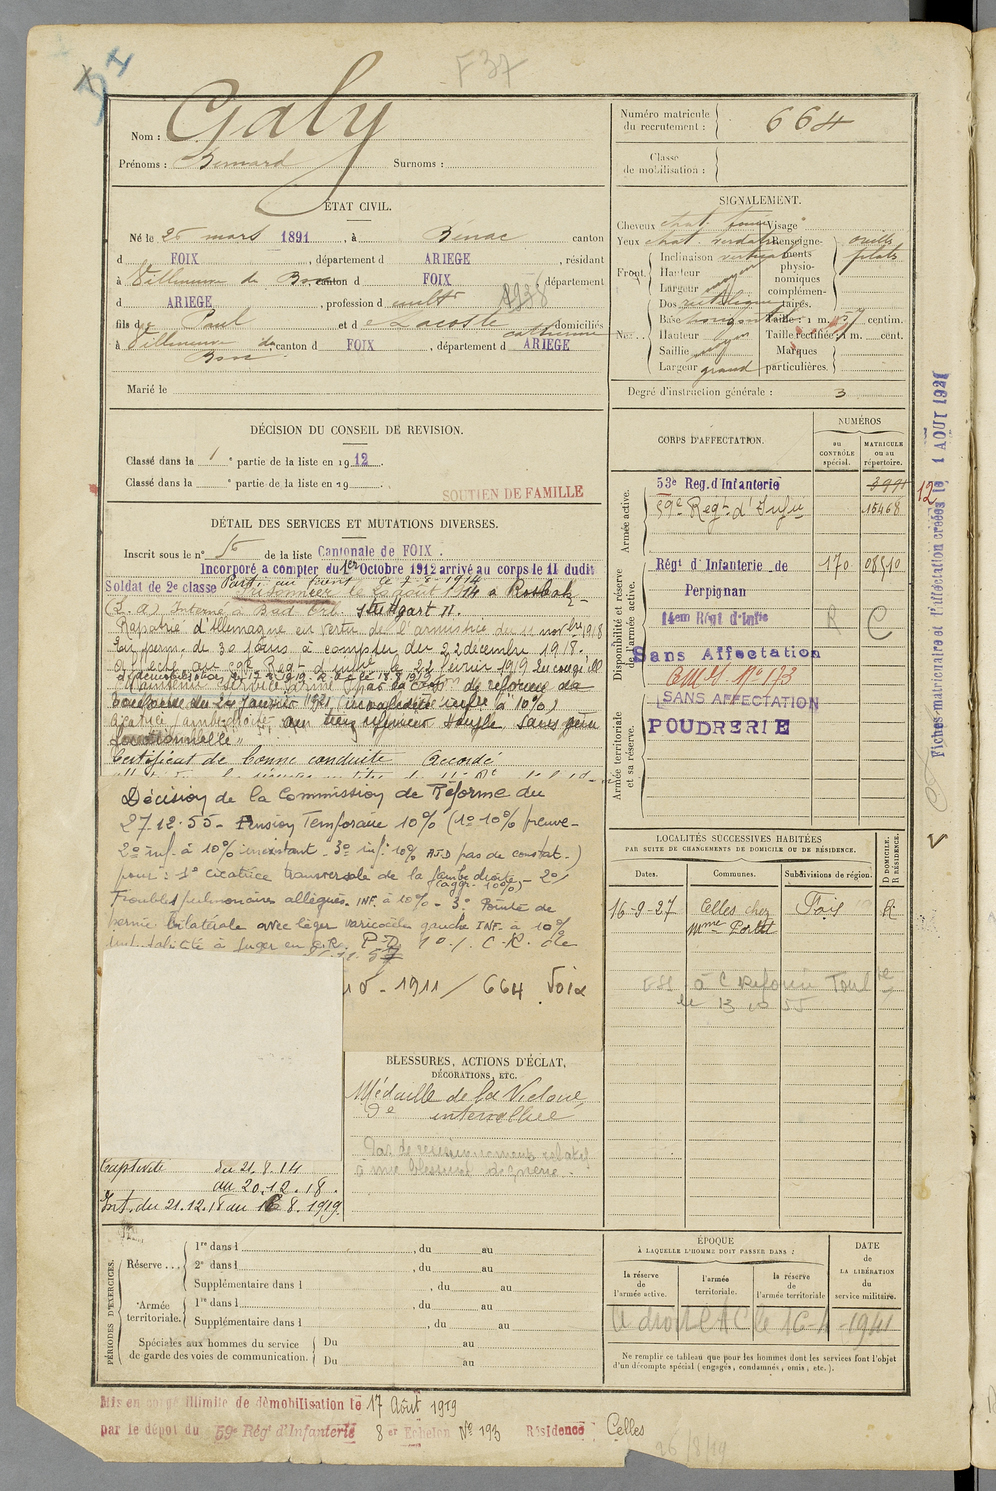 F 37
Nom : Galy
Prénoms : Bernard Surnoms :
ÉTAT CIVIL.
Né le 26 mars 1891, à Bénac canton
d FOIX, département d ARIEGE, résidant
à Villeneuve du Bosc canton d FOIX département
d ARIEGE, profession d cultr
fils de Paul et de Lacoste Catherine domiciliés
à Villeneuve du Bosc canton d FOIX, département d ARIEGE
Marié le
DÉCISION DU CONSEIL DE REVISION.
Classé dans la 1e partie de la liste en 1912.
Classé dans la e partie de la liste en 19 .
SOUTIEN DE FAMILLE
DÉTAIL DES SERVICES ET MUTATIONS DIVERSES.
Inscrit sous le n° 16 de la liste Cantonale de FOIX.
Incorporé a compter du 1er Octobre 1912 arrivé au corps le 11 dudit
Soldat de 2e classe Parti au front le 7-8-1914
Prisonnier le 20 août 1914 à Rosbach
Interné à Bad Stuttgart II.
Rapatrié d'Allemagne en vertu de l'armistice du 11 novbre 1918
En perm. de 30 jours à compter du 22 décembre 1918.
Affecté au 59e Regt d'Infrie le 22 février 1919 En congé ill
de démobilisation
Maintenu service armé par la Comon de réforme de
Toulouse du 20 Janvier 1921 (invalidité infre à 10%)
Cicatrice jambe droite,
fonctionnelle"
Certificat de bonne conduite Accordé
Décision de la Commission de Réforme du
27.12.55 - Pension Temporaire 10% (1º 10% preuve-
2º inf. à 10% inexistant. 3º inf. 10% pas de constat.)
pour : 1º cicatrice transversale de la jambe droite - 2º/
(aggr. 10%)
Troubles pulmonaires allégués. INF. à 10% - 3º Pointe de
hernie bilatérale avec léger varicocèle gauche INF. à 10%
10 - 1911 / 664 Foix
BLESSURES, ACTIONS D'ÉCLAT,
DÉCORATIONS, ETC.
Médaille de la Victoire
de interalliée
Pas de renseignements relatif
à une blessure de guerre.
Captivité du 21.8.14
au 20.12.18.
Int. du 21.12.18 au 16 8.1919.
PÉRIODES D'EXERCICES.
Réserve... 1re dans l , du au
2e dans l , du au
Supplémentaire dans l , du au
Armée territoriale. 1re dans l , du au
Supplémentaire dans l , du au
Spéciales aux hommes du service Du au
de garde des voies de communication. Du au
Mis en congé illimité de démobilisation le 17 Août 1919
par le dépot du 59e Régt d'Infanterie 8 er Echelon No 193 Résidence Celles
26/8/19
Numéro matricule
du recrutement : 664
Classe
de mobilisation :
SIGNALEMENT.
Cheveux chat. foncé Visage
Yeux chat. verdâtre Renseigne-
Front. Inclinaison verticale ments
Hauteur physio-
Largeur moyen nomiques
Nez... Dos rectiligne complémen-
Base horizontal taires.
oreilles
plats
Hauteur moyen Taille : 1 m. 57 centim.
Saillie moyen Taille rectifiée : 1 m. cent.
Largeur grand Marques
particulières.
Degré d'instruction générale : 3
CORPS D'AFFECTATION.
NUMÉROS
au CONTRÔLE spécial.
MATRICULE ou au répertoire.
Armée active.
53e Reg. d'Infanterie 3991
59e Regt d'Infie 15468
Disponibilité et réserve
de l'armée active.
Régt d'Infanterie de 170 08510
Perpignan
14em Régt d'Inftie R C
Sans Affectation
CMG No 173
Armée territoriale
et sa réserve.
SANS AFFECTATION
POUDRERIE
12
Fiches matriculaire et d'affectation créées le 1 AOUT 1921
LOCALITÉS SUCCESSIVES HABITÉES
PAR SUITE DE CHANGEMENTS DE DOMICILE OU DE RÉSIDENCE.
Dates. Communes. Subdivisions de région. D DOMICILE. R RÉSIDENCE.
16-9-27 Celles chez Foix R
Mme Portet
à C Réforme Toulse
le 13 10 55
ÉPOQUE
À LAQUELLE L'HOMME DOIT PASSER DANS :
la réserve de l'armée active.
l'armée territoriale.
la réserve de l'armée territoriale
DATE
de
LA LIBÉRATION
du
service militaire.
A droit C A C le 16-4-1941
Ne remplir ce tableau que pour les hommes dont les services font l'objet
d'un décompte spécial (engagés, condamnés, omis, etc.).